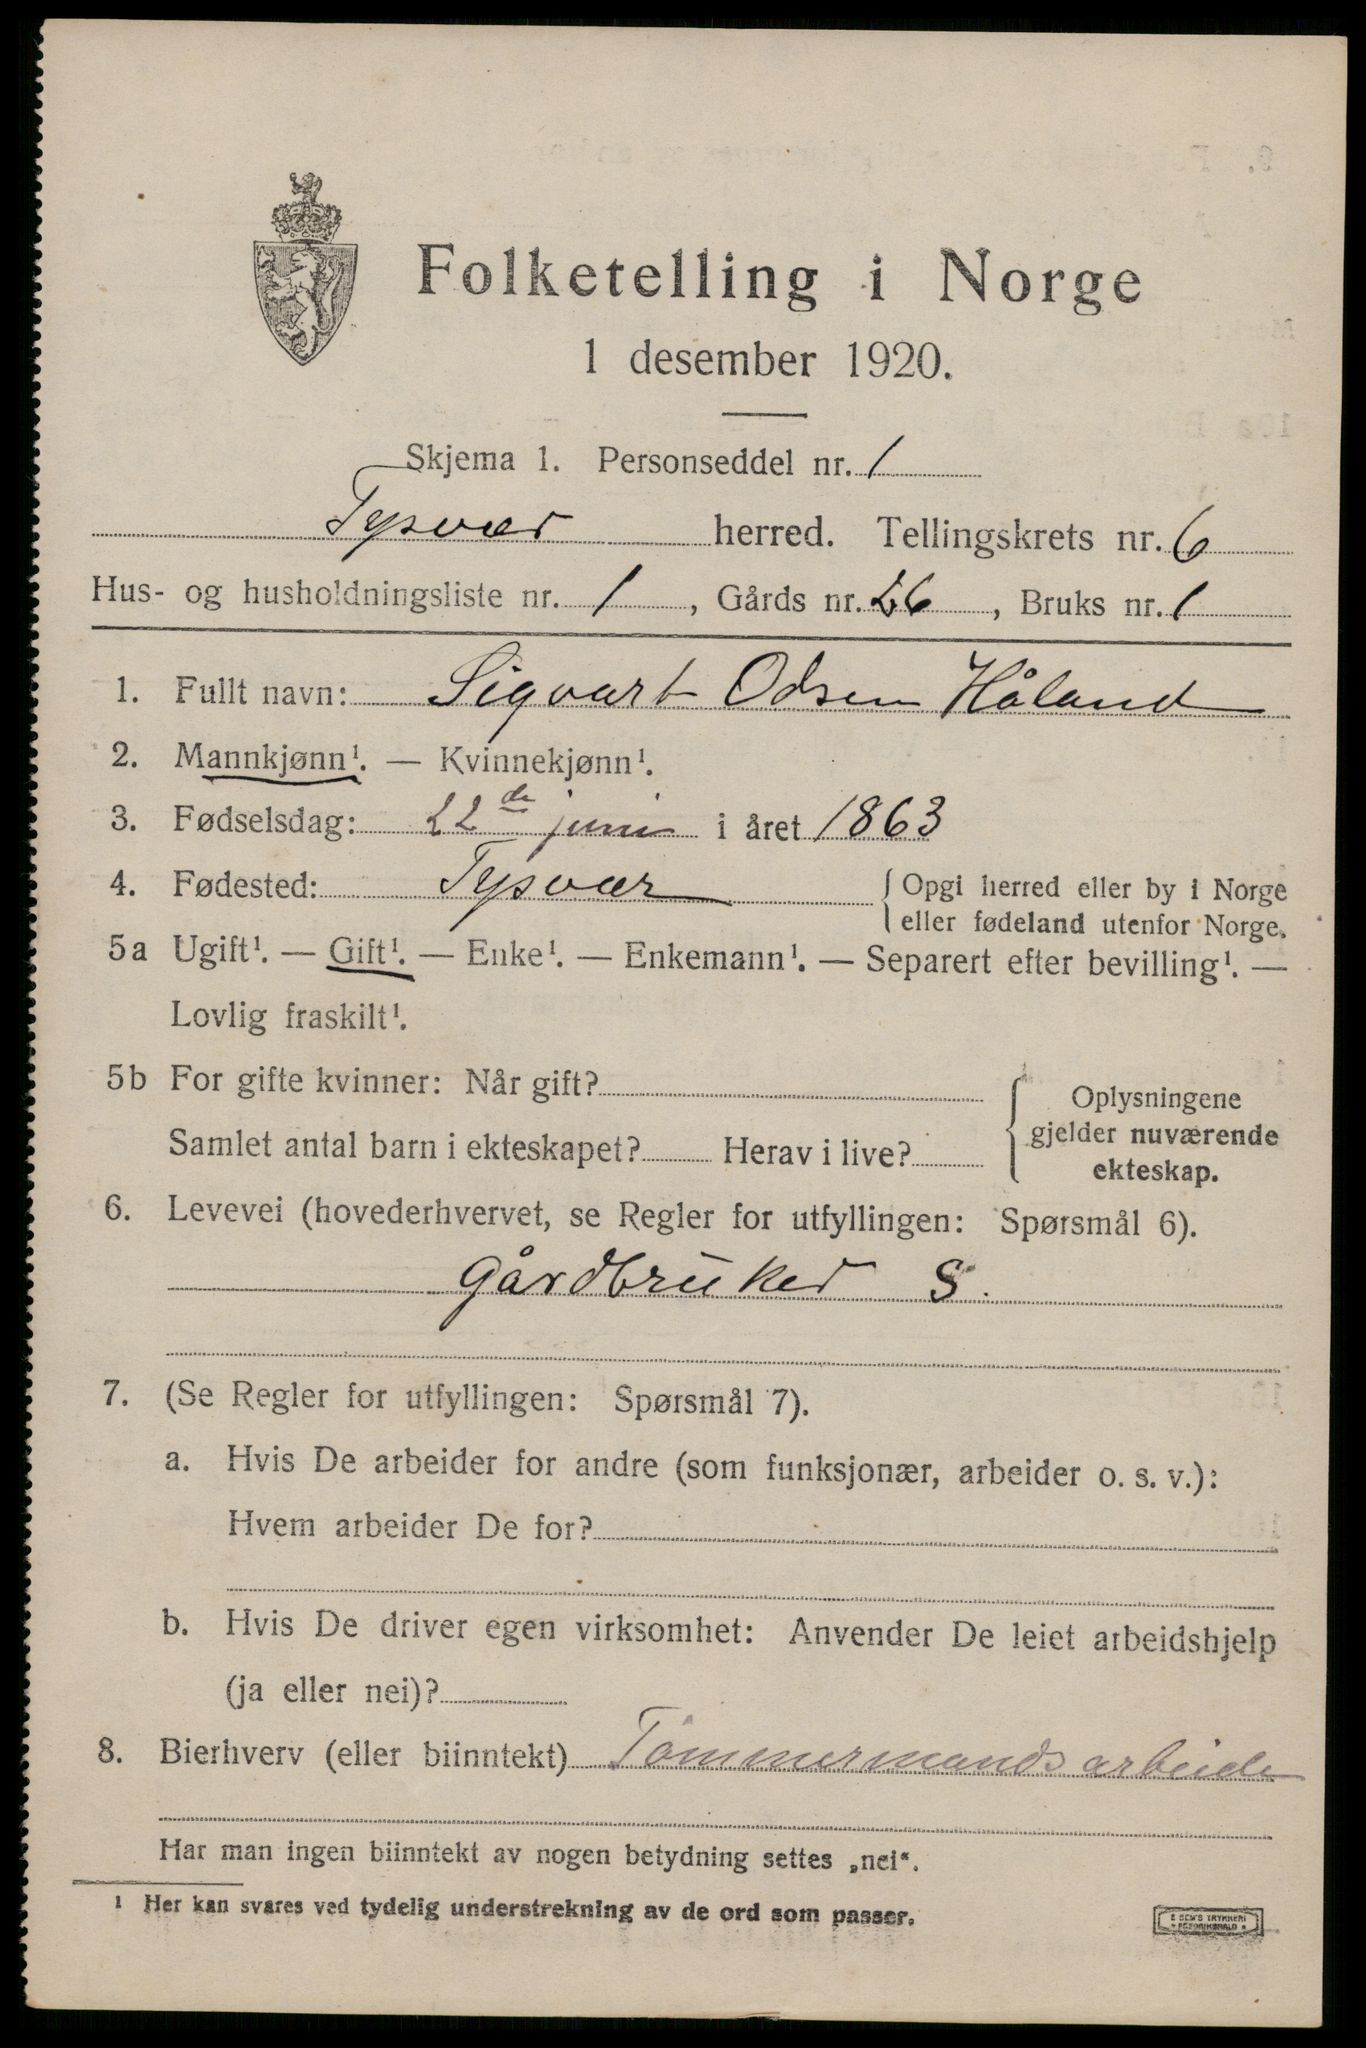 Folketelling i Norge
1 desember 1920.
Skjema 1. Personseddel nr. 1
Tysvær herred. Tellingskrets nr. 6
Hus- og husholdningsliste nr. 1, Gårds nr. 26, Bruks nr. 1
1. Fullt navn: Sigvart Odsen Håland
2. Mannkjønn¹. — Kvinnekjønn¹.
3. Fødselsdag: 22de juni i året 1863
4. Fødested: Tysvær { Opgi herred eller by i Norge
eller fødeland utenfor Norge.
5a Ugift¹. — Gift¹. — Enke¹. — Enkemann¹. — Separert efter bevilling¹. —
Lovlig fraskilt¹.
5b For gifte kvinner: Når gift?
Samlet antal barn i ekteskapet? Herav i live?
{ Oplysningene
gjelder nuværende
ekteskap.
6. Levevei (hovederhvervet, se Regler for utfyllingen: Spørsmål 6).
Gårdbruker S.
7. (Se Regler for utfyllingen: Spørsmål 7).
a. Hvis De arbeider for andre (som funksjonær, arbeider o. s. v.):
Hvem arbeider De for?
b. Hvis De driver egen virksomhet: Anvender De leiet arbeidshjelp
(ja eller nei)?
8. Bierhverv (eller biinntekt) Tømmermandsarbeide
Har man ingen biinntekt av nogen betydning settes „nei“.
¹ Her kan svares ved tydelig understrekning av de ord som passer.
E SEM'S TRYKKERI
FREDRIKSHALD